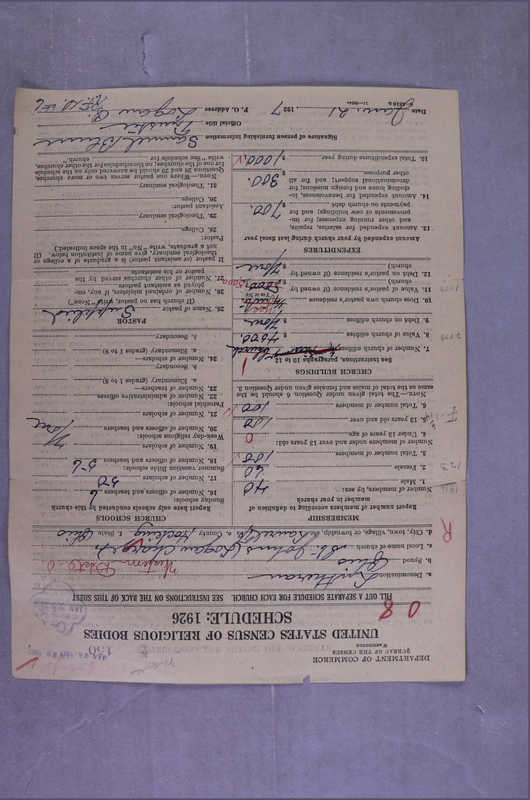 DEPARTMENT OF COMMERCE
BUREAU OF THE CENSUS
WASHINGTON
UNITED STATES CENSUS OF RELIGIOUS BODIES
SCHEDULE: 1926
FILL OUT A SEPARATE SCHEDULE FOR EACH CHURCH. SEE INSTRUCTIONS ON THE BACK OF THIS SHEET
a. Denomination Lutheran
b. Synod Ohio
c. Local name of church St. Johns (Logan Chapel)
d. City, town, village, or township, etc. Laurel Tp. e. County Hocking f. State Ohio
MEMBERSHIP
Report number of members according to definition of member in your church
Number of members, by sex:
1. Male 40
2. Female 60
3. Total number of members 100
Number of members under and over 13 years old:
4. Under 13 years of age 0
5. 13 years old and over 100
6. Total number of members 100
NOTE.—The total given under Question 6 should be the same as the total of males and females given under Question 3.
CHURCH BUILDINGS
See Instructions, paragraphs 10 to 12
7. Number of church edifices 1
8. Value of church edifices $ 4500.
9. Debt on church edifices $ None
10. Does church own pastor's residence
11. Value of pastor's residence (if owned by church)
12. Debt on pastor's residence (if owned by church) $ None
EXPENDITURES
Amount expended by your church during last fiscal year
13. Amount expended for salaries, repairs, and other running expenses; for improvements or new building; and for payments on church debt $ 700.
14. Amount expended for benevolences, including home and foreign missions; for denominational support; and for all other purposes $ 300.
15. Total expenditures during year $ 1000.
CHURCH SCHOOLS
Report here only schools conducted by this church
Sunday schools:
16. Number of officers and teachers 6
17. Number of scholars 50
Summer vacation Bible schools:
18. Number of officers and teachers
19. Number of scholars
Week-day religious schools:
20. Number of officers and teachers None
21. Number of scholars
Parochial schools:
22. Number of administrative officers
23. Number of teachers
a. Elementary (grades 1 to 8)
b. Secondary
24. Number of scholars
a. Elementary (grades 1 to 8)
b. Secondary
PASTOR
25. Name of pastor Supplied
(If church has no pastor, write "None")
26. Number of ordained ministers, if any, employed as assistant pastors
27. Number of other churches served by the pastor or his assistants
If pastor (or assistant pastor) is a graduate of a college or theological seminary, give name of institution below. (If not a graduate, write "No" in the space indicated.)
Pastor:
28. College
29. Theological seminary
Assistant pastor:
30. College
31. Theological seminary
NOTE.—Where one pastor serves two or more churches, Questions 28 and 29 should be answered only on the schedule for one of the churches; on the schedules for the other churches, write "See schedule for church."
Signature of person furnishing information Samuel
Official title Trustee
P. O. Address Logan O.
Date Jan. 21 1927